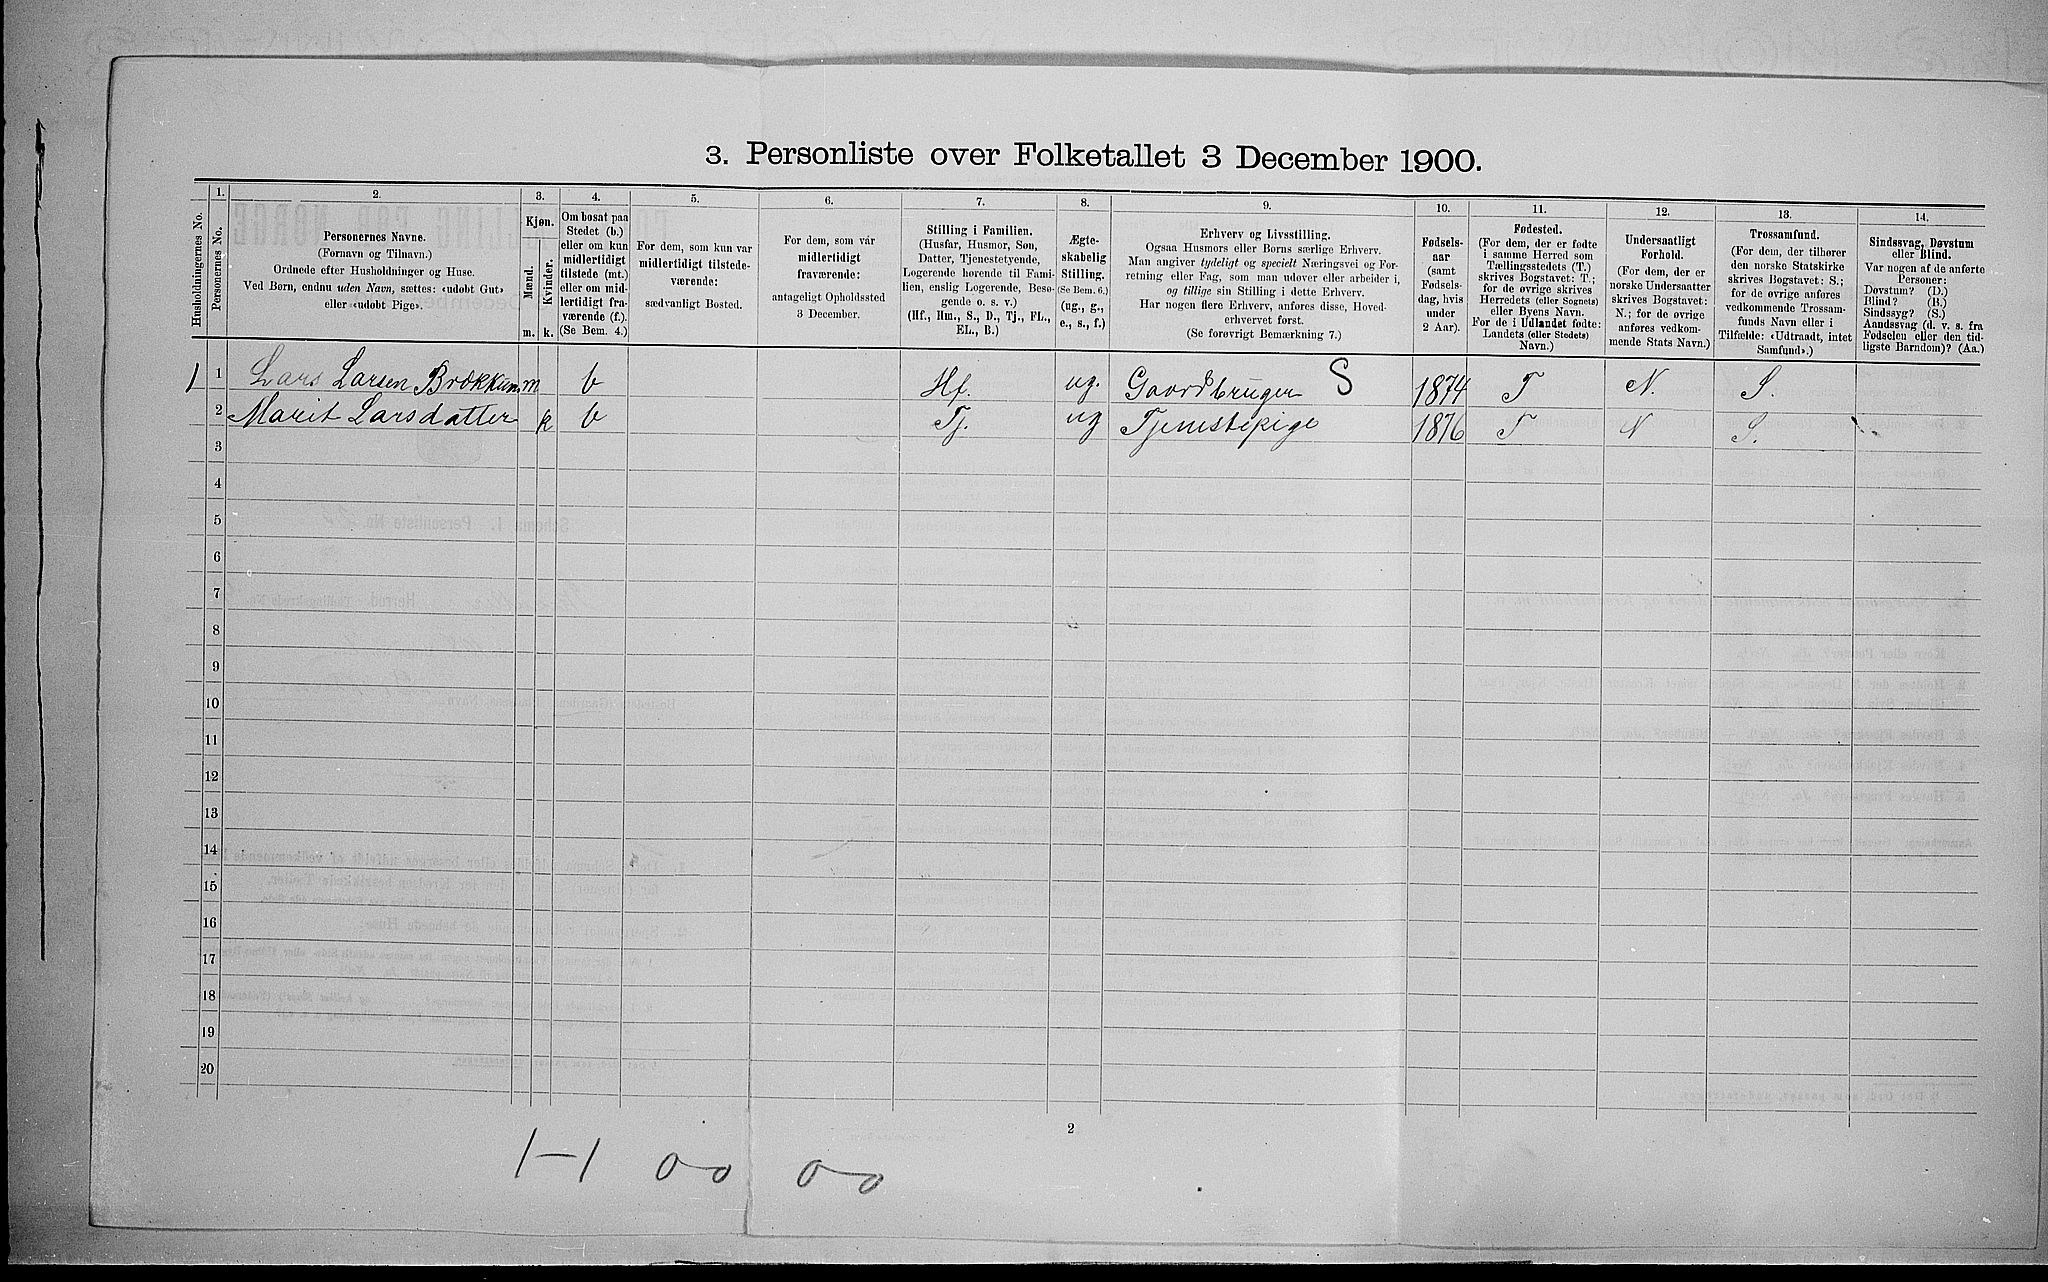 3. Personliste over Folketallet 3 December 1900.
1. 2. 3. 4. 5. 6. 7. 8. 9. 10. 11. 12. 13. 14.
Husholdningernes No.
Personernes No.
Personernes Navne.
(Fornavn og Tilnavn.)
Ordnede efter Husholdninger og Huse.
Ved Børn, endnu uden Navn, sættes: «udøbt Gut»
eller «udøbt Pige».
Kjøn.
Mænd.
Kvinder.
m. k.
Om bosat paa
Stedet (b.)
eller om kun
midlertidigt
tilstede (mt.)
eller om mid-
lertidigt fra-
værende (f.).
(Se Bem. 4.)
For dem, som kun var
midlertidigt tilstede-
værende:
sædvanligt Bosted.
For dem, som var
midlertidigt
fraværende:
antageligt Opholdssted
3 December.
Stilling i Familien.
(Husfar, Husmor, Søn,
Datter, Tjenestetyende,
Logerende hørende til Fami-
lien, enslig Logerende, Besø-
gende o. s. v.)
(Hf., Hm., S., D., Tj., FL.,
EL., B.)
Ægte-
skabelig
Stilling.
(Se Bem. 6.)
(ug., g.,
e., s., f.)
Erhverv og Livsstilling.
Ogsaa Husmors eller Børns særlige Erhverv.
Man angiver tydeligt og specielt Næringsvei og For-
retning eller Fag, som man udøver eller arbeider i,
og tillige sin Stilling i dette Erhverv.
Har nogen flere Erhverv, anføres disse, Hoved-
erhvervet først.
(Se forøvrigt Bemærkning 7.)
Fødsels-
aar
(samt
Fødsels-
dag, hvis
under
2 Aar).
Fødested.
(For dem, der er fødte
i samme Herred som
Tællingsstedets (T.)
skrives Bogstavet: T.;
for de øvrige skrives
Herredets (eller Sognets)
eller Byens Navn.
For de i Udlandet fødte:
Landets (eller Stedets)
Navn.)
Undersaatligt
Forhold.
(For dem, der er
norske Undersaatter
skrives Bogstavet:
N.; for de øvrige
anføres vedkom-
mende Stats Navn.)
Trossamfund.
(For dem, der tilhører
den norske Statskirke
skrives Bogstavet: S.;
for de øvrige anføres
vedkommende Trossam-
funds Navn eller i
Tilfælde: «Udtraadt, intet
Samfund».)
Sindssvag, Døvstum
eller Blind.
Var nogen af de anførte
Personer:
Døvstum? (D.)
Blind? (B.)
Sindssyg? (S.)
Aandssvag (d. v. s. fra
Fødselen eller den tid-
ligste Barndom)? (Aa.)
1 1 Lars Larsen Brækkum m b Hf. ug. Gaardbruger S 1874 T N. S.
2 Marit Larsdatter k b Tj. ug Tjenestepige 1876 T N S.
3
4
5
6
7
8
9
10
11
12
13
14
15
16
17
18
19
20
2
1-1 0-0 0-0